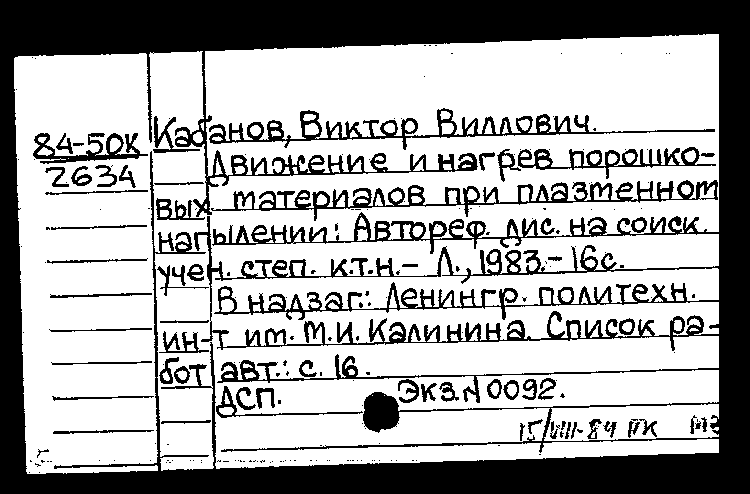 84-50К Кабанов, Виктор Виллович.
2634 Движение и нагрев порошко-
вых материалов при плазменном
напылении: Автореф. дис. на соиск.
учен. степ. к.т.н.- Л., 1983.- 16с.
В надзаг.: Ленингр. политехн.
ин-т им. М.И. Калинина. Список ра-
бот авт.: с. 16.
ДСП. Экз.N0092.
15/VIII-84 ПК МЗ